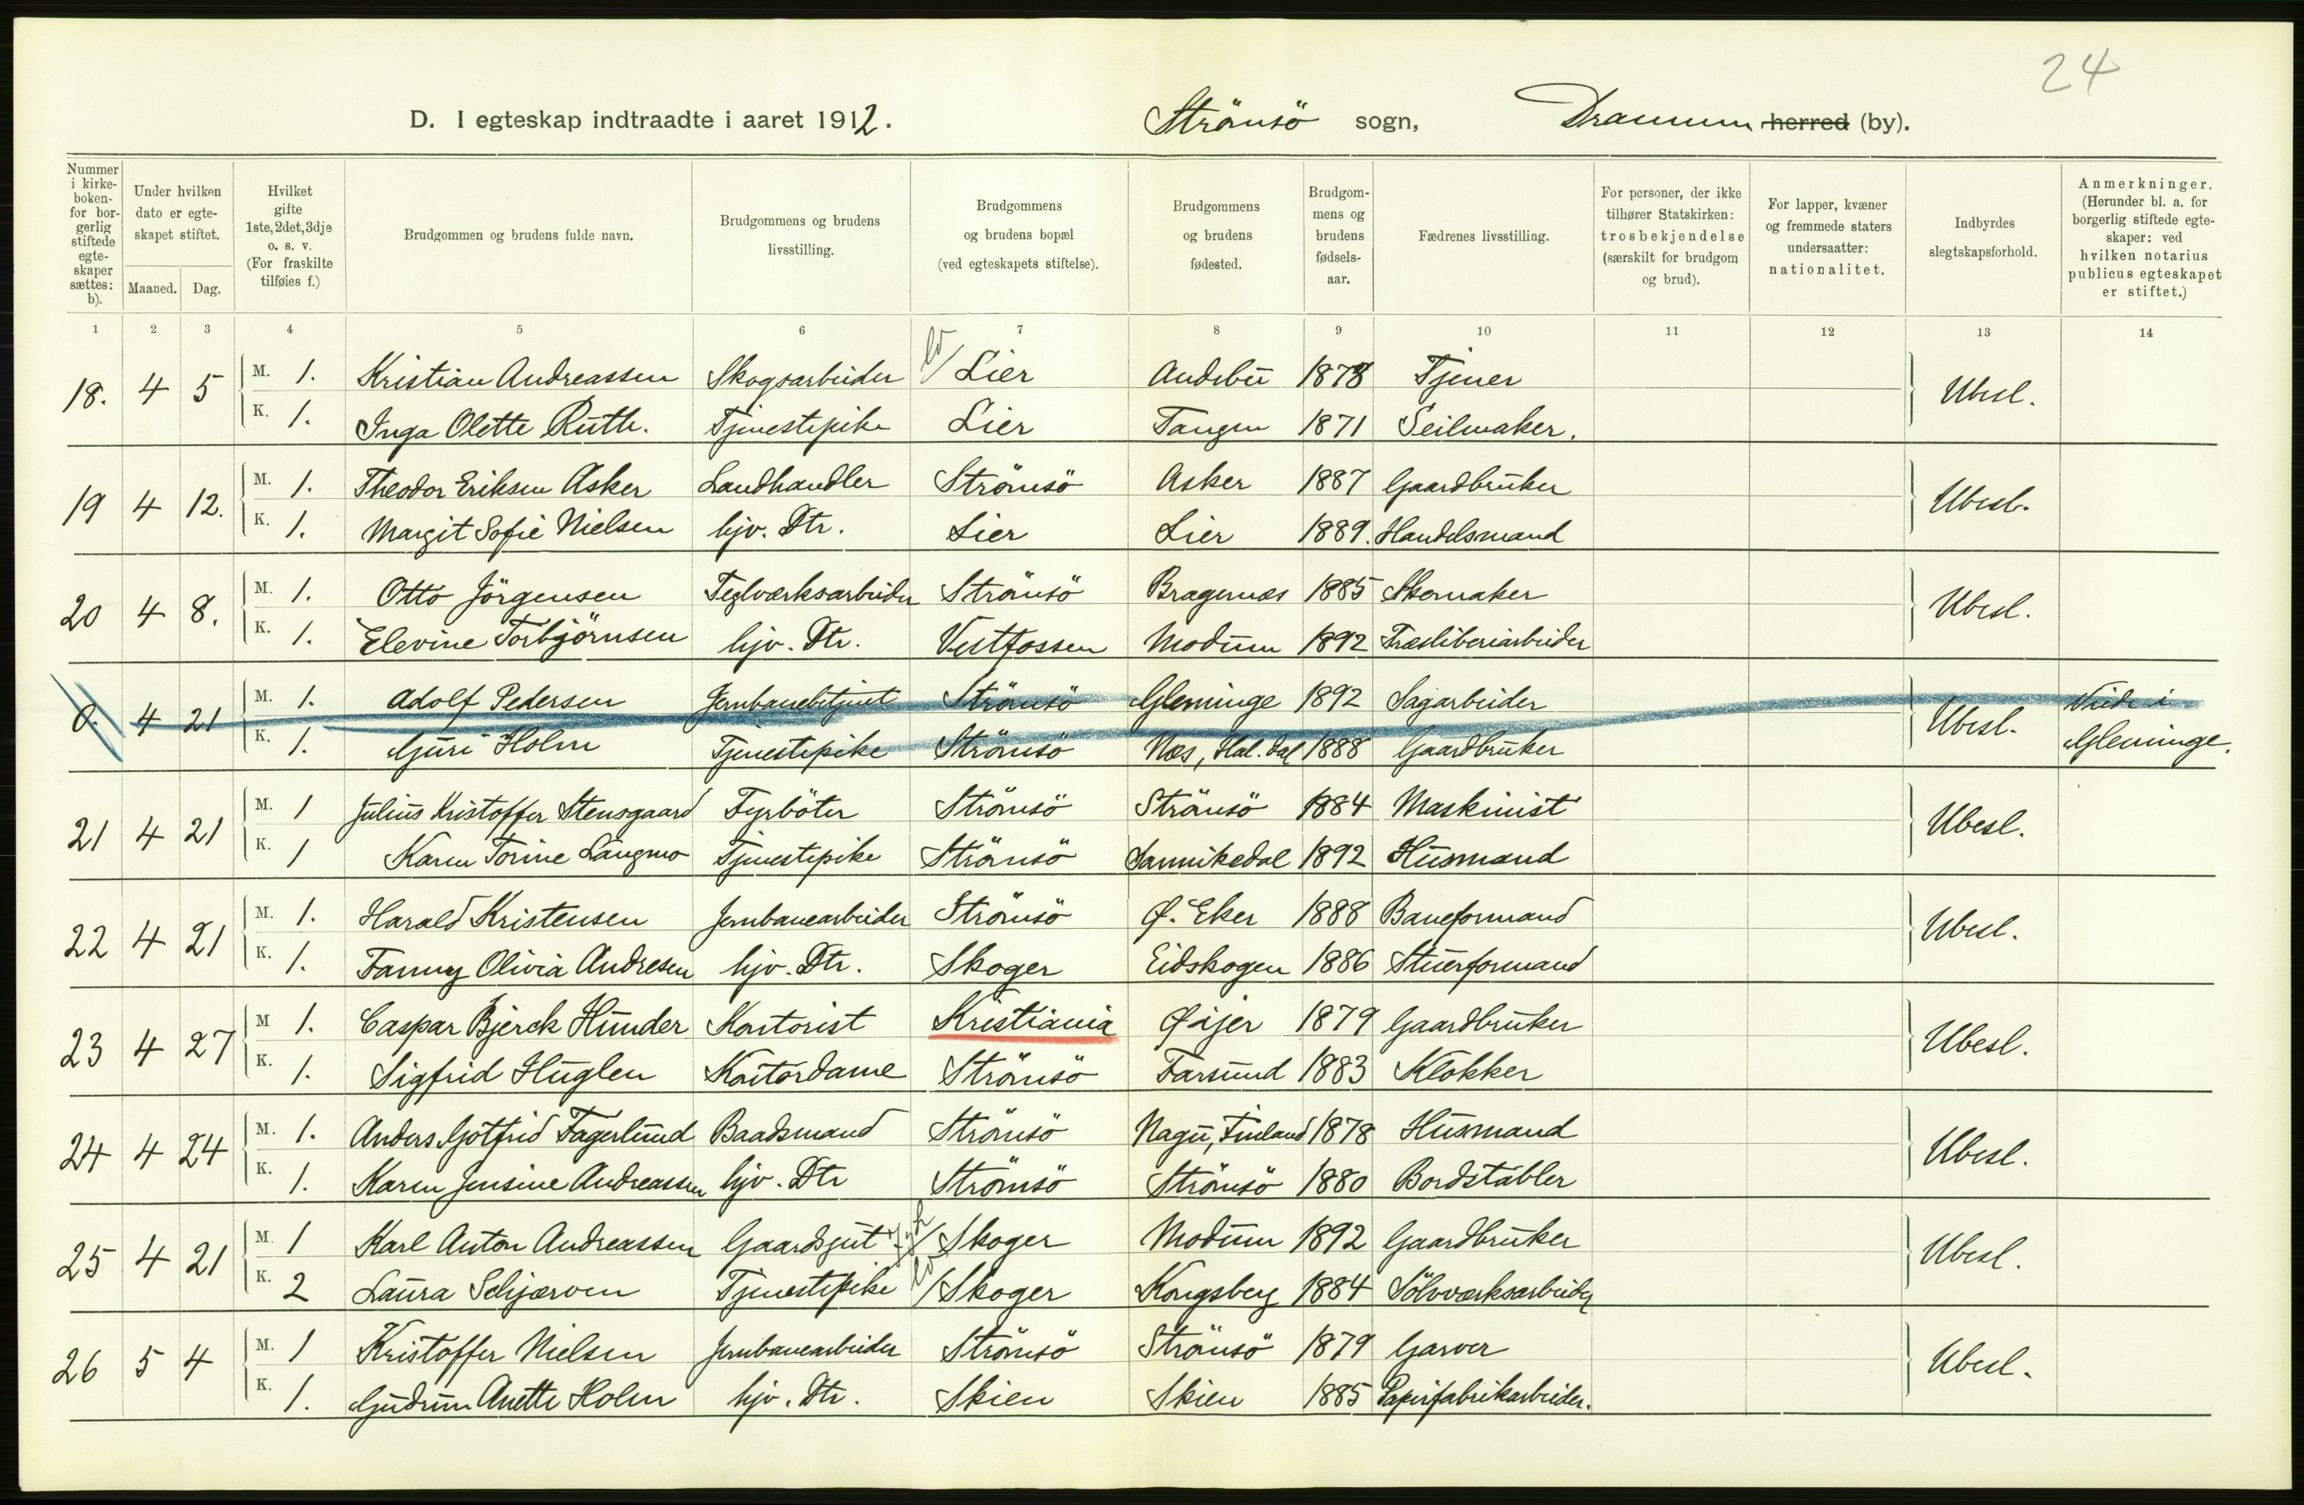 24
D. I egteskap indtraadte i aaret 1912. Strömsö sogn, Drammen herred (by).
Nummer i kirkeboken- for borgerlig stiftede egteskaper sættes: b). | Under hvilken dato er egteskapet stiftet. Maaned. Dag. | Hvilket gifte 1ste, 2det, 3dje o. s. v. (For fraskilte tilføies f.) | Brudgommen og brudens fulde navn. | Brudgommens og brudens livsstilling. | Brudgommens og brudens bopæl (ved egteskapets stiftelse). | Brudgommens og brudens fødested. | Brudgommens og brudens fødselsaar. | Fædrenes livsstilling. | For personer, der ikke tilhører Statskirken: trosbekjendelse (særskilt for brudgom og brud). | For lapper, kvæner og fremmede staters undersaatter: nationalitet. | Indbyrdes slegtskapsforhold. | Anmerkninger. (Herunder bl. a. for borgerlig stiftede egteskaper: ved hvilken notarius publicus egteskapet er stiftet.)
1 2 3 4 5 6 7 8 9 10 11 12 13 14
18. 4 5 M. 1. Kristian Andreassen Skogsarbeider Lier Andebu 1878 Tjener Ubesl.
K. 1. Inga Olette Ruth. Tjenestepike Lier Tangen 1871 Seilmaker.
19 4 12. M. 1. Theodor Eriksen Asker Landhandler Strömsö Asker 1887 Gaardbruker Ubesl.
K. 1. Margit Sofie Nielsen hjv. Dtr. Lier Lier 1889. Handelsmand
20 4 8. M. 1. Otto Jörgensen Teglverksarbeider Strömsö Bragernæs 1885 Skomaker Ubesl.
K. 1. Elevine Torbjörnsen hjv. Dtr. Vestfossen Modum 1892 Træsliberiarbeider
0. 4 21 M. 1. Adolf Pedersen Jernbanebetjent Strömsö Gleminge 1892 Sagarbeider Ubesl. Viede i
K. 1. Guri Holm Tjenestepike Strömsö Næs, Hal.dal 1888 Gaardbruker Gleminge.
21 4 21 M. 1 Julius Kristoffer Stensgaard Fyrböter Strömsö Strömsö 1884 Maskinist Ubesl.
K. 1 Karen Torine Langmo Tjenestepike Strömsö Sannikedal 1892 Husmand
22 4 21 M. 1. Harald Kristensen Jernbanearbeider Strömsö Ø. Eker 1888 Baneformand Ubesl.
K. 1. Fanny Olivia Andresen hjv. Dtr. Skoger Eidskogen 1886 Stuerformand
23 4 27 M 1. Caspar Bjerck Hunder Kontorist Kristiania Øijer 1879 Gaardbruker Ubesl.
K. 1. Sigfrid Huglen Kontordame Strömsö Farsund 1883 Klokker
24 4 24 M. 1. Anders Gotfrid Fagerlund Baadsmand Strömsö Nagu, Finland 1878 Husmand Ubesl.
K. 1. Karen Jensine Andreassen hjv. Dtr Strömsö Strömsö 1880 Bordstabler
25 4 21 M. 1 Karl Anton Andreassen Gaardsgut Skoger Modum 1892 Gaardbruker Ubesl.
K. 2 Laura Schjærven Tjenestepike Skoger Kongsberg 1884 Sölvværksarbeider
26 5 4 M. 1 Kristoffer Nielsen Jernbanearbeider Strömsö Strömsö 1879 Garver Ubesl.
K. 1. Gudrun Anette Holm hjv. Dtr. Skien Skien 1885 Papirfabrikarbeider.